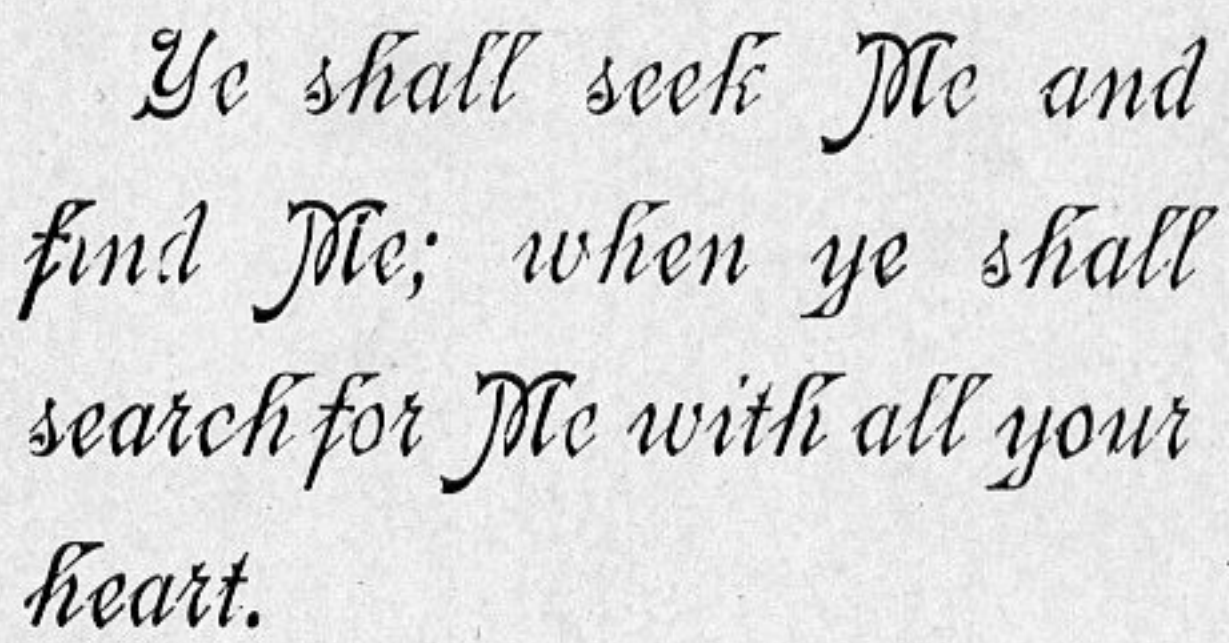 Ye shall seek Me and
find Me; when ye shall
search for Me with all your
heart.